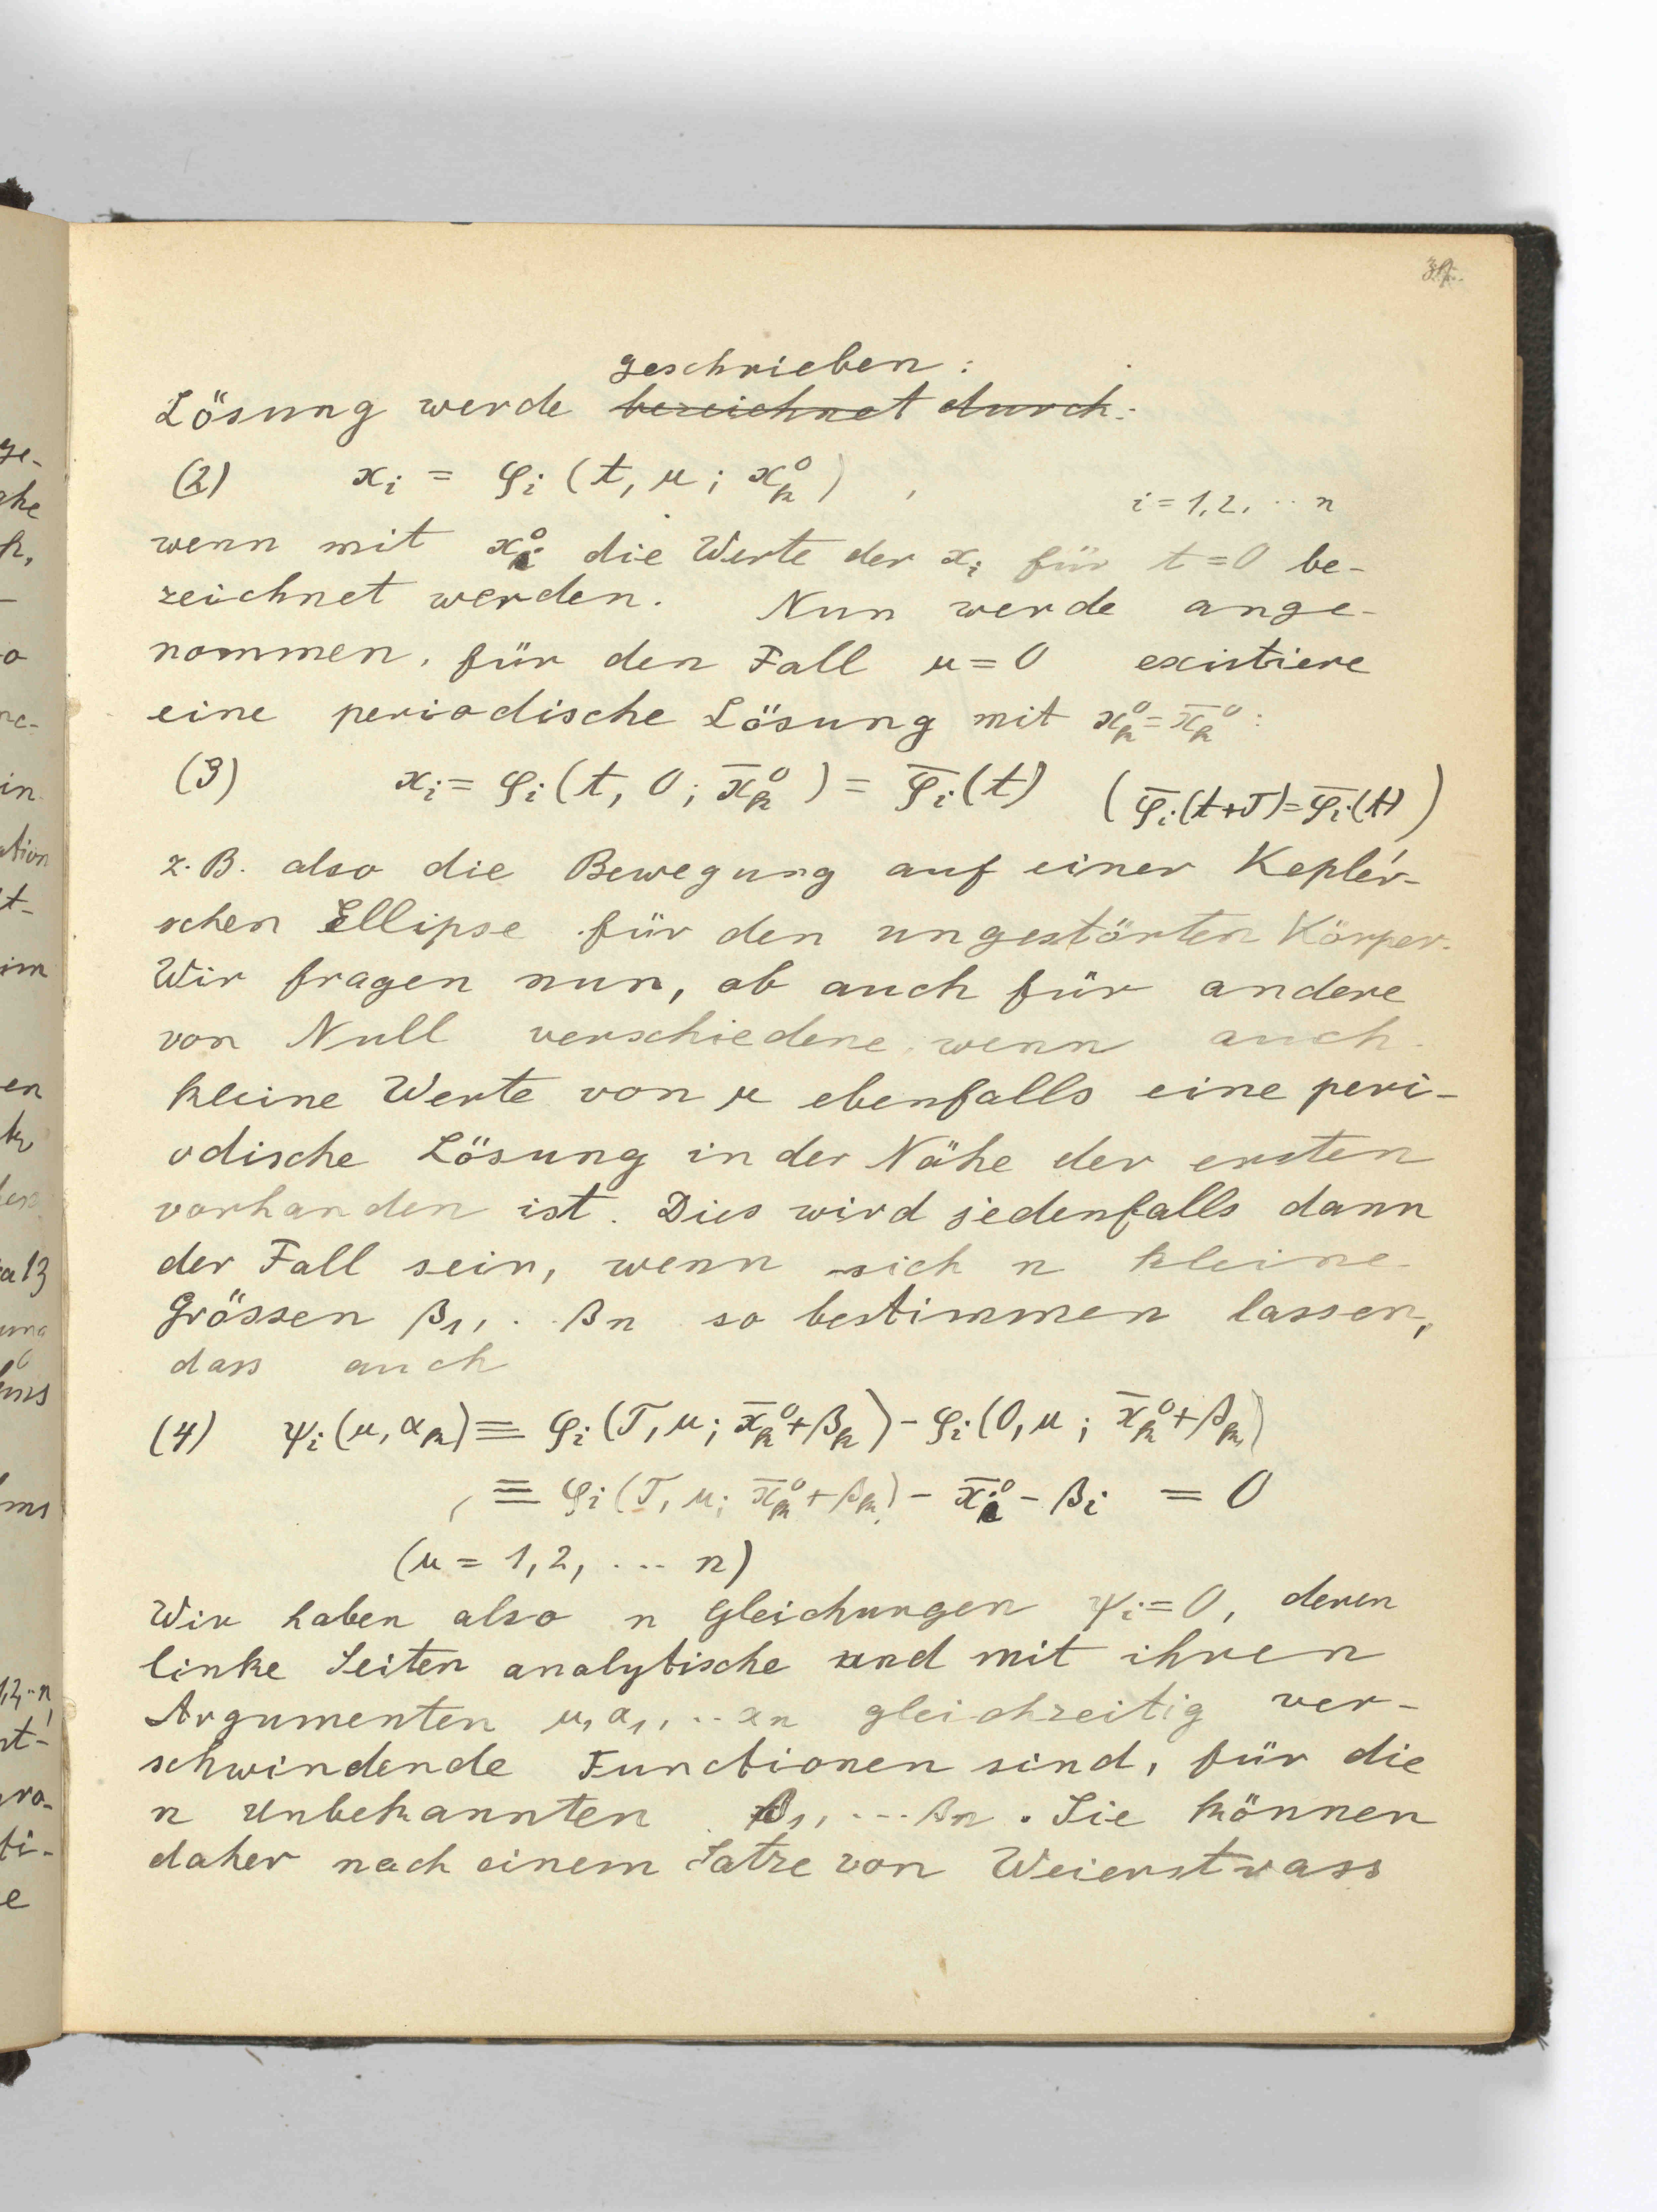 geschrieben:
Lösung werde bezeichnet durch:
(2) xᵢ = φᵢ (t, μ; xₖ⁰) ,
i = 1,2, ·· n
wenn mit xᵢ⁰ die Werte der xᵢ für t=0 be-
zeichnet werden. Nun werde ange-
nommen, für den Fall μ=0 existiere
eine periodische Lösung mit xₖ⁰ = x̄ₖ⁰ :
(3) xᵢ = φᵢ (t, 0; x̄ₖ⁰) = φ̄ᵢ(t) (φ̄ᵢ(t+T)=φ̄ᵢ(t))
z.B. also die Bewegung auf einer Kepler'-
schen Ellipse für den ungestörten Körper.
Wir fragen nun, ob auch für andere
von Null verschiedene, wenn auch
kleine Werte von μ ebenfalls eine peri-
odische Lösung in der Nähe der ersten
vorhanden ist. Dies wird jedenfalls dann
der Fall sein, wenn sich n kleine
Grössen β₁, ·· βₙ so bestimmen lassen,
dass auch
(4) ψᵢ(μ, αₖ) ≡ φᵢ(T, μ; x̄ₖ⁰+βₖ) - φᵢ(0, μ; x̄ₖ⁰+βₖ)
≡ φᵢ(T, μ; x̄ₖ⁰+βₖ) - x̄ᵢ⁰ - βᵢ = 0
(μ = 1,2, ... n)
Wir haben also n Gleichungen ψᵢ=0, deren
linke Seiten analytische und mit ihren
Argumenten μ, α₁, ·· αₙ gleichzeitig ver-
schwindende Functionen sind, für die
n Unbekannten β₁, ··· βₙ. Sie können
daher nach einem Satze von Weierstrass